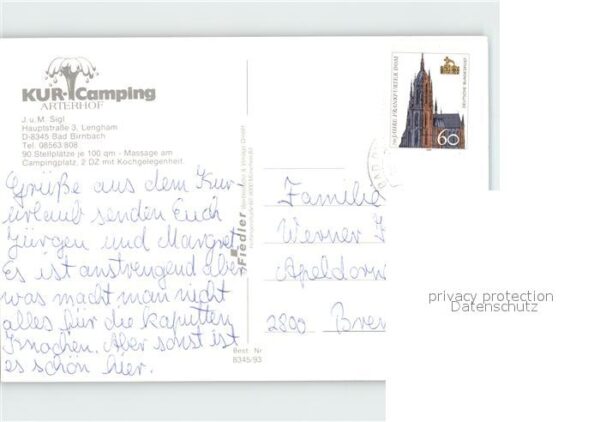 KUR-Camping
ARTERHOF
J. u. M. Sigl
Hauptstraße 3, Lengham
D-8345 Bad Birnbach
Tel. 08563/808
90 Stellplätze je 100 qm - Massage am
Campingplatz, 2 DZ mit Kochgelegenheit.
Grüße aus dem Kur-
urlaub senden Euch
Jürgen und Margret.
Es ist anstrengend aber
was macht man nicht
alles für die kaputten
Knochen. Aber sonst ist
es schön hier.
Fiedler
Best. Nr.
B345/93
JAHRE FRANKFURTER DOM
DEUTSCHE BUNDESPOST
60
Familie
Werner
Apeldorn
2800 Bre
privacy protection
Datenschutz